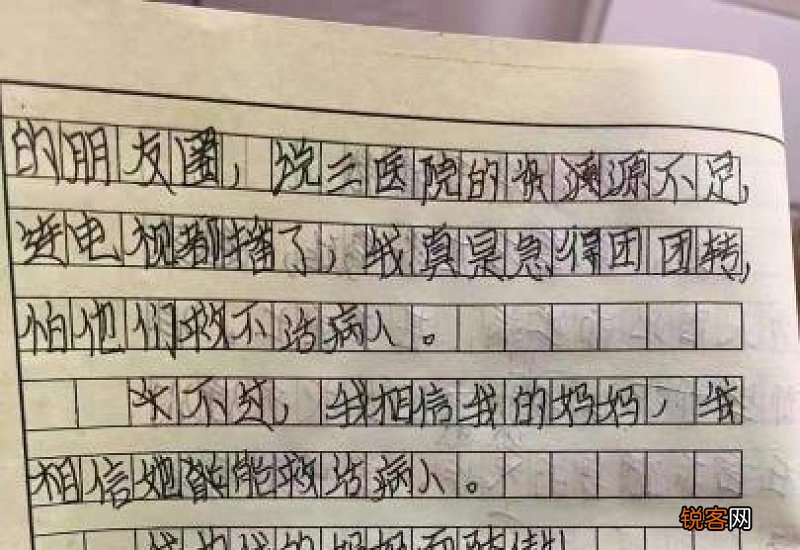 的朋友圈，说三医院的资源不足，
连电视都播了，我真是急得团团转，
怕他们救不活病人。
不过，我相信我的妈妈，我
相信她能救活病人。
我的妈妈
锐客网